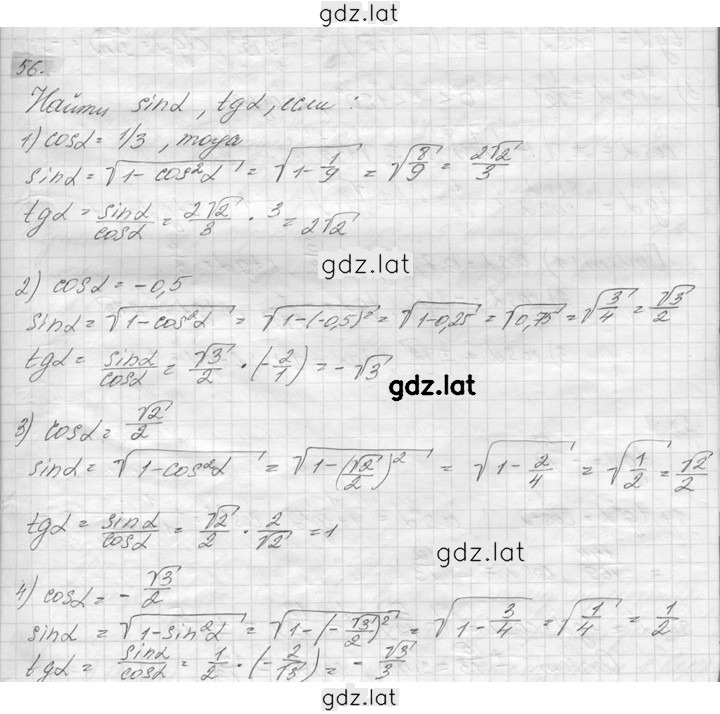 gdz.lat
56.
Найти sinα, tgα, если:
1) cosα = 1/3, тогда
sinα = √(1 - cos²α) = √(1 - 1/9) = √(8/9) = 2√2/3
tgα = sinα/cosα = 2√2/3 · 3 = 2√2
gdz.lat
2) cosα = -0,5
sinα = √(1 - cos²α) = √(1 - (-0,5)²) = √(1 - 0,25) = √0,75 = √(3/4) = √3/2
tgα = sinα/cosα = √3/2 · (-2/1) = -√3
gdz.lat
3) cosα = √2/2
sinα = √(1 - cos²α) = √(1 - (√2/2)²) = √(1 - 2/4) = √(1/2) = √2/2
tgα = sinα/cosα = √2/2 · 2/√2 = 1
gdz.lat
4) cosα = -√3/2
sinα = √(1 - sin²α) = √(1 - (-√3/2)²) = √(1 - 3/4) = √(1/4) = 1/2
tgα = sinα/cosα = 1/2 · (-2/√3) = -√3/3
gdz.lat